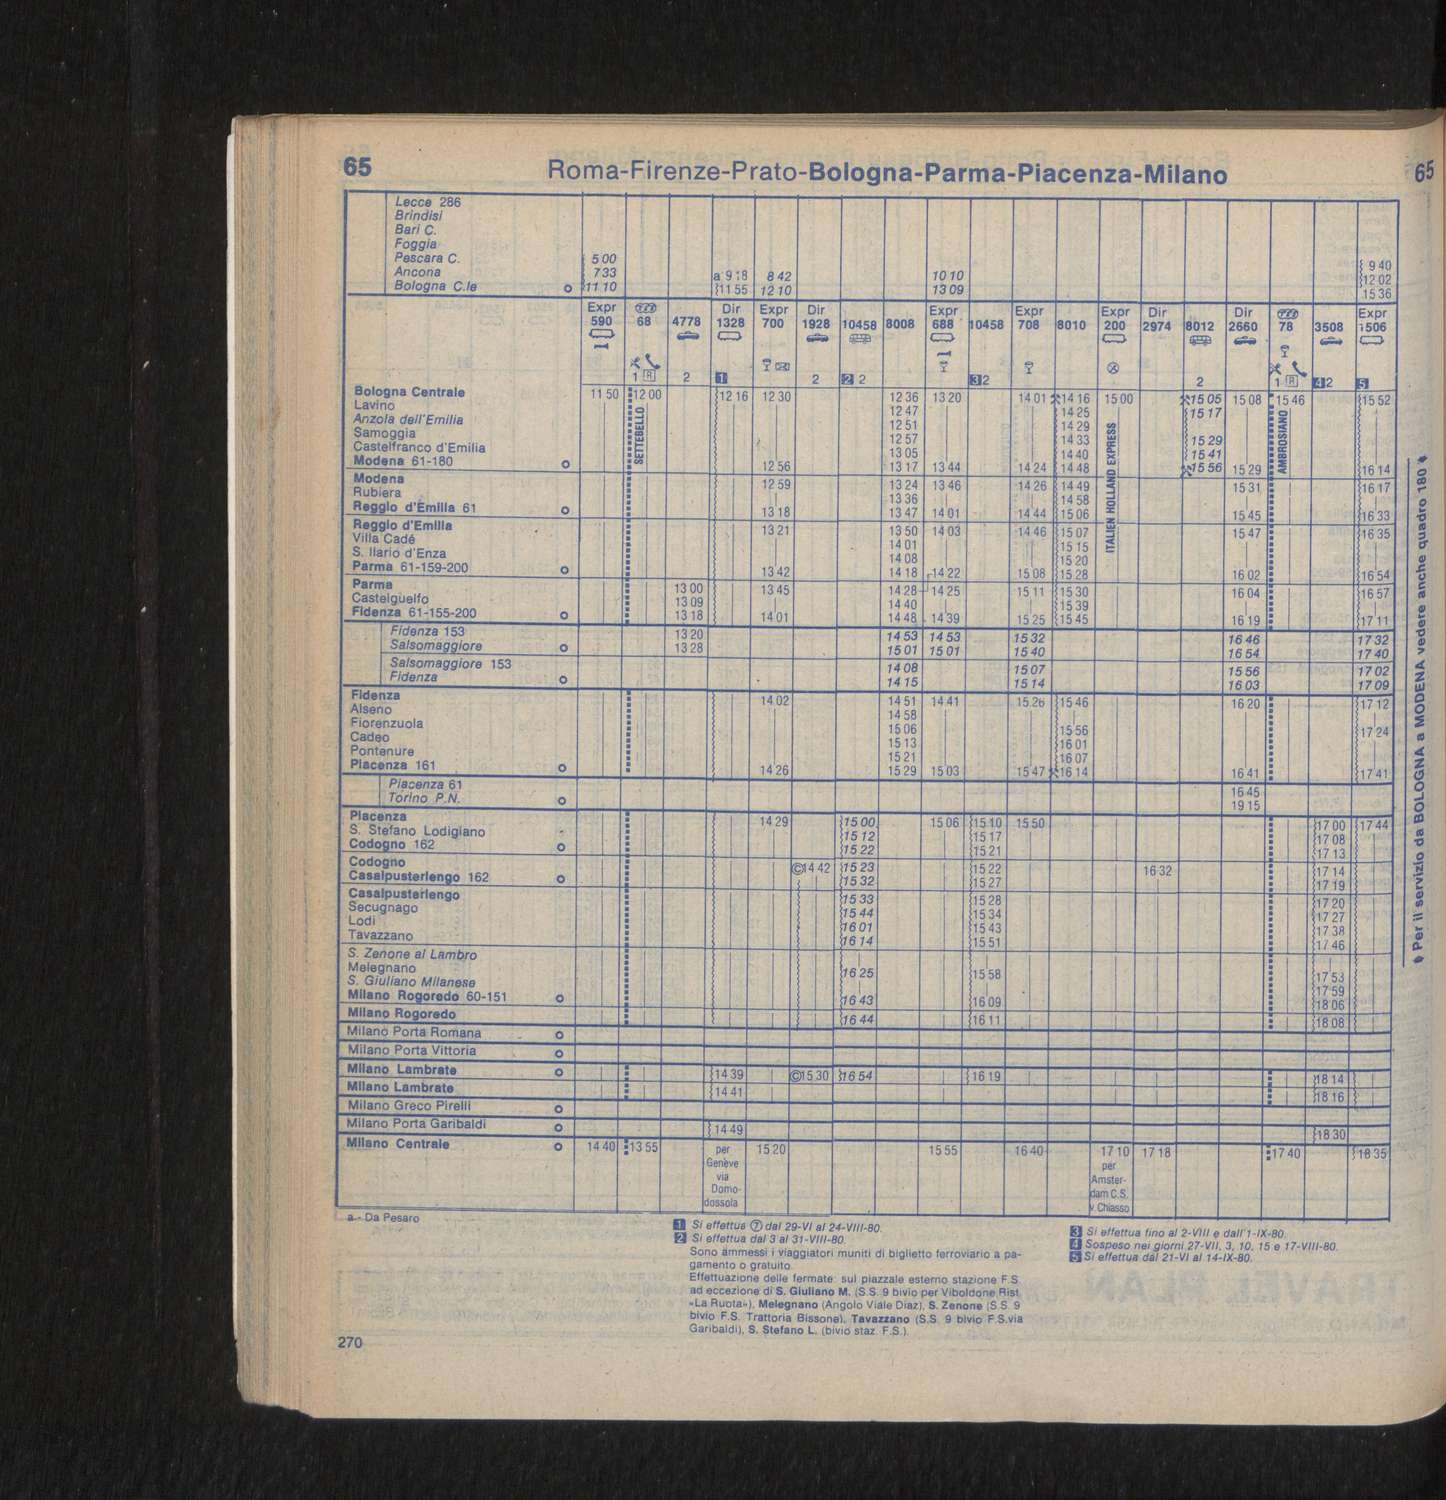 65 Roma-Firenze-Prato-Bologna-Parma-Piacenza-Milano 65
Lecce 286
Brindisi
Bari C.
Foggia
Pescara C. 5 00 9 40
Ancona 7 33 a 9 18 8 42 10 10 12 02
Bologna C.le o 11 10 11 55 12 10 13 09 15 36
Expr Dir Expr Dir Expr Expr Expr Dir Dir Expr
590 68 4778 1328 700 1928 10458 8008 688 10458 708 8010 200 2974 8012 2660 78 3508 1506
1 R 2 1 2 2 2 3 2 2 1 R 4 2 5
Bologna Centrale 11 50 12 00 12 16 12 30 12 36 13 20 14 01 14 16 15 00 15 05 15 08 15 46 15 52
Lavino 12 47 14 25 15 17
Anzola dell'Emilia 12 51 14 29
Samoggia 12 57 14 33 15 29
Castelfranco d'Emilia 13 05 14 40 15 41
Modena 61-180 o 12 56 13 17 13 44 14 24 14 48 15 56 15 29 16 14
SETTEBELLO
ITALIEN HOLLAND EXPRESS
AMBROSIANO
Modena 12 59 13 24 13 46 14 26 14 49 15 31 16 17
Rubiera 13 36 14 58
Reggio d'Emilia 61 o 13 18 13 47 14 01 14 44 15 06 15 45 16 33
Reggio d'Emilia 13 21 13 50 14 03 14 46 15 07 15 47 16 35
Villa Cadé 14 01 15 15
S. Ilario d'Enza 14 08 15 20
Parma 61-159-200 o 13 42 14 18 14 22 15 08 15 28 16 02 16 54
Parma 13 00 13 45 14 28 14 25 15 11 15 30 16 04 16 57
Castelguelfo 13 09 14 40 15 39
Fidenza 61-155-200 o 13 18 14 01 14 48 14 39 15 25 15 45 16 19 17 11
Fidenza 153 13 20 14 53 14 53 15 32 16 46 17 32
Salsomaggiore o 13 28 15 01 15 01 15 40 16 54 17 40
Salsomaggiore 153 14 08 15 07 15 56 17 02
Fidenza o 14 15 15 14 16 03 17 09
Fidenza 14 02 14 51 14 41 15 26 15 46 16 20 17 12
Alseno 14 58
Fiorenzuola 15 06 15 56 17 24
Cadeo 15 13 16 01
Pontenure 15 21 16 07
Piacenza 161 o 14 26 15 29 15 03 15 47 16 14 16 41 17 41
Piacenza 61 16 45
Torino P.N. o 19 15
Piacenza 14 29 15 00 15 06 15 10 15 50 17 00 17 44
S. Stefano Lodigiano 15 12 15 17 17 08
Codogno 162 o 15 22 15 21 17 13
Codogno ©14 42 15 23 15 22 16 32 17 14
Casalpusterlengo 162 o 15 32 15 27 17 19
Casalpusterlengo 15 33 15 28 17 20
Secugnago 15 44 15 34 17 27
Lodi 16 01 15 43 17 38
Tavazzano 16 14 15 51 17 46
S. Zenone al Lambro
Melegnano 16 25 15 58 17 53
S. Giuliano Milanese 17 59
Milano Rogoredo 60-151 o 16 43 16 09 18 06
Milano Rogoredo 16 44 16 11 18 08
Milano Porta Romana o
Milano Porta Vittoria o
Milano Lambrate o 14 39 ©15 30 16 54 16 19 18 14
Milano Lambrate 14 41 18 16
Milano Greco Pirelli o
Milano Porta Garibaldi o 14 49 18 30
Milano Centrale o 14 40 13 55 per 15 20 15 55 16 40 17 10 17 18 17 40 18 35
Genève per
via Amster-
Domo- dam C.S.
dossola v. Chiasso
Per il servizio da BOLOGNA a MODENA vedere anche quadro 180
a - Da Pesaro
1 Si effettua ⑦ dal 29-VI al 24-VIII-80.
2 Si effettua dal 3 al 31-VIII-80.
Sono ammessi i viaggiatori muniti di biglietto ferroviario a pa-
gamento o gratuito.
Effettuazione delle fermate: sul piazzale esterno stazione F.S.
ad eccezione di S. Giuliano M. (S.S. 9 bivio per Viboldone Rist.
«La Ruota»), Melegnano (Angolo Viale Diaz), S. Zenone (S.S. 9
bivio F.S. Trattoria Bissone), Tavazzano (S.S. 9 bivio F.S.via
Garibaldi), S. Stefano L. (bivio staz. F.S.).
3 Si effettua fino al 2-VIII e dall'1-IX-80.
4 Sospeso nei giorni 27-VII, 3, 10, 15 e 17-VIII-80.
5 Si effettua dal 21-VI al 14-IX-80.
270